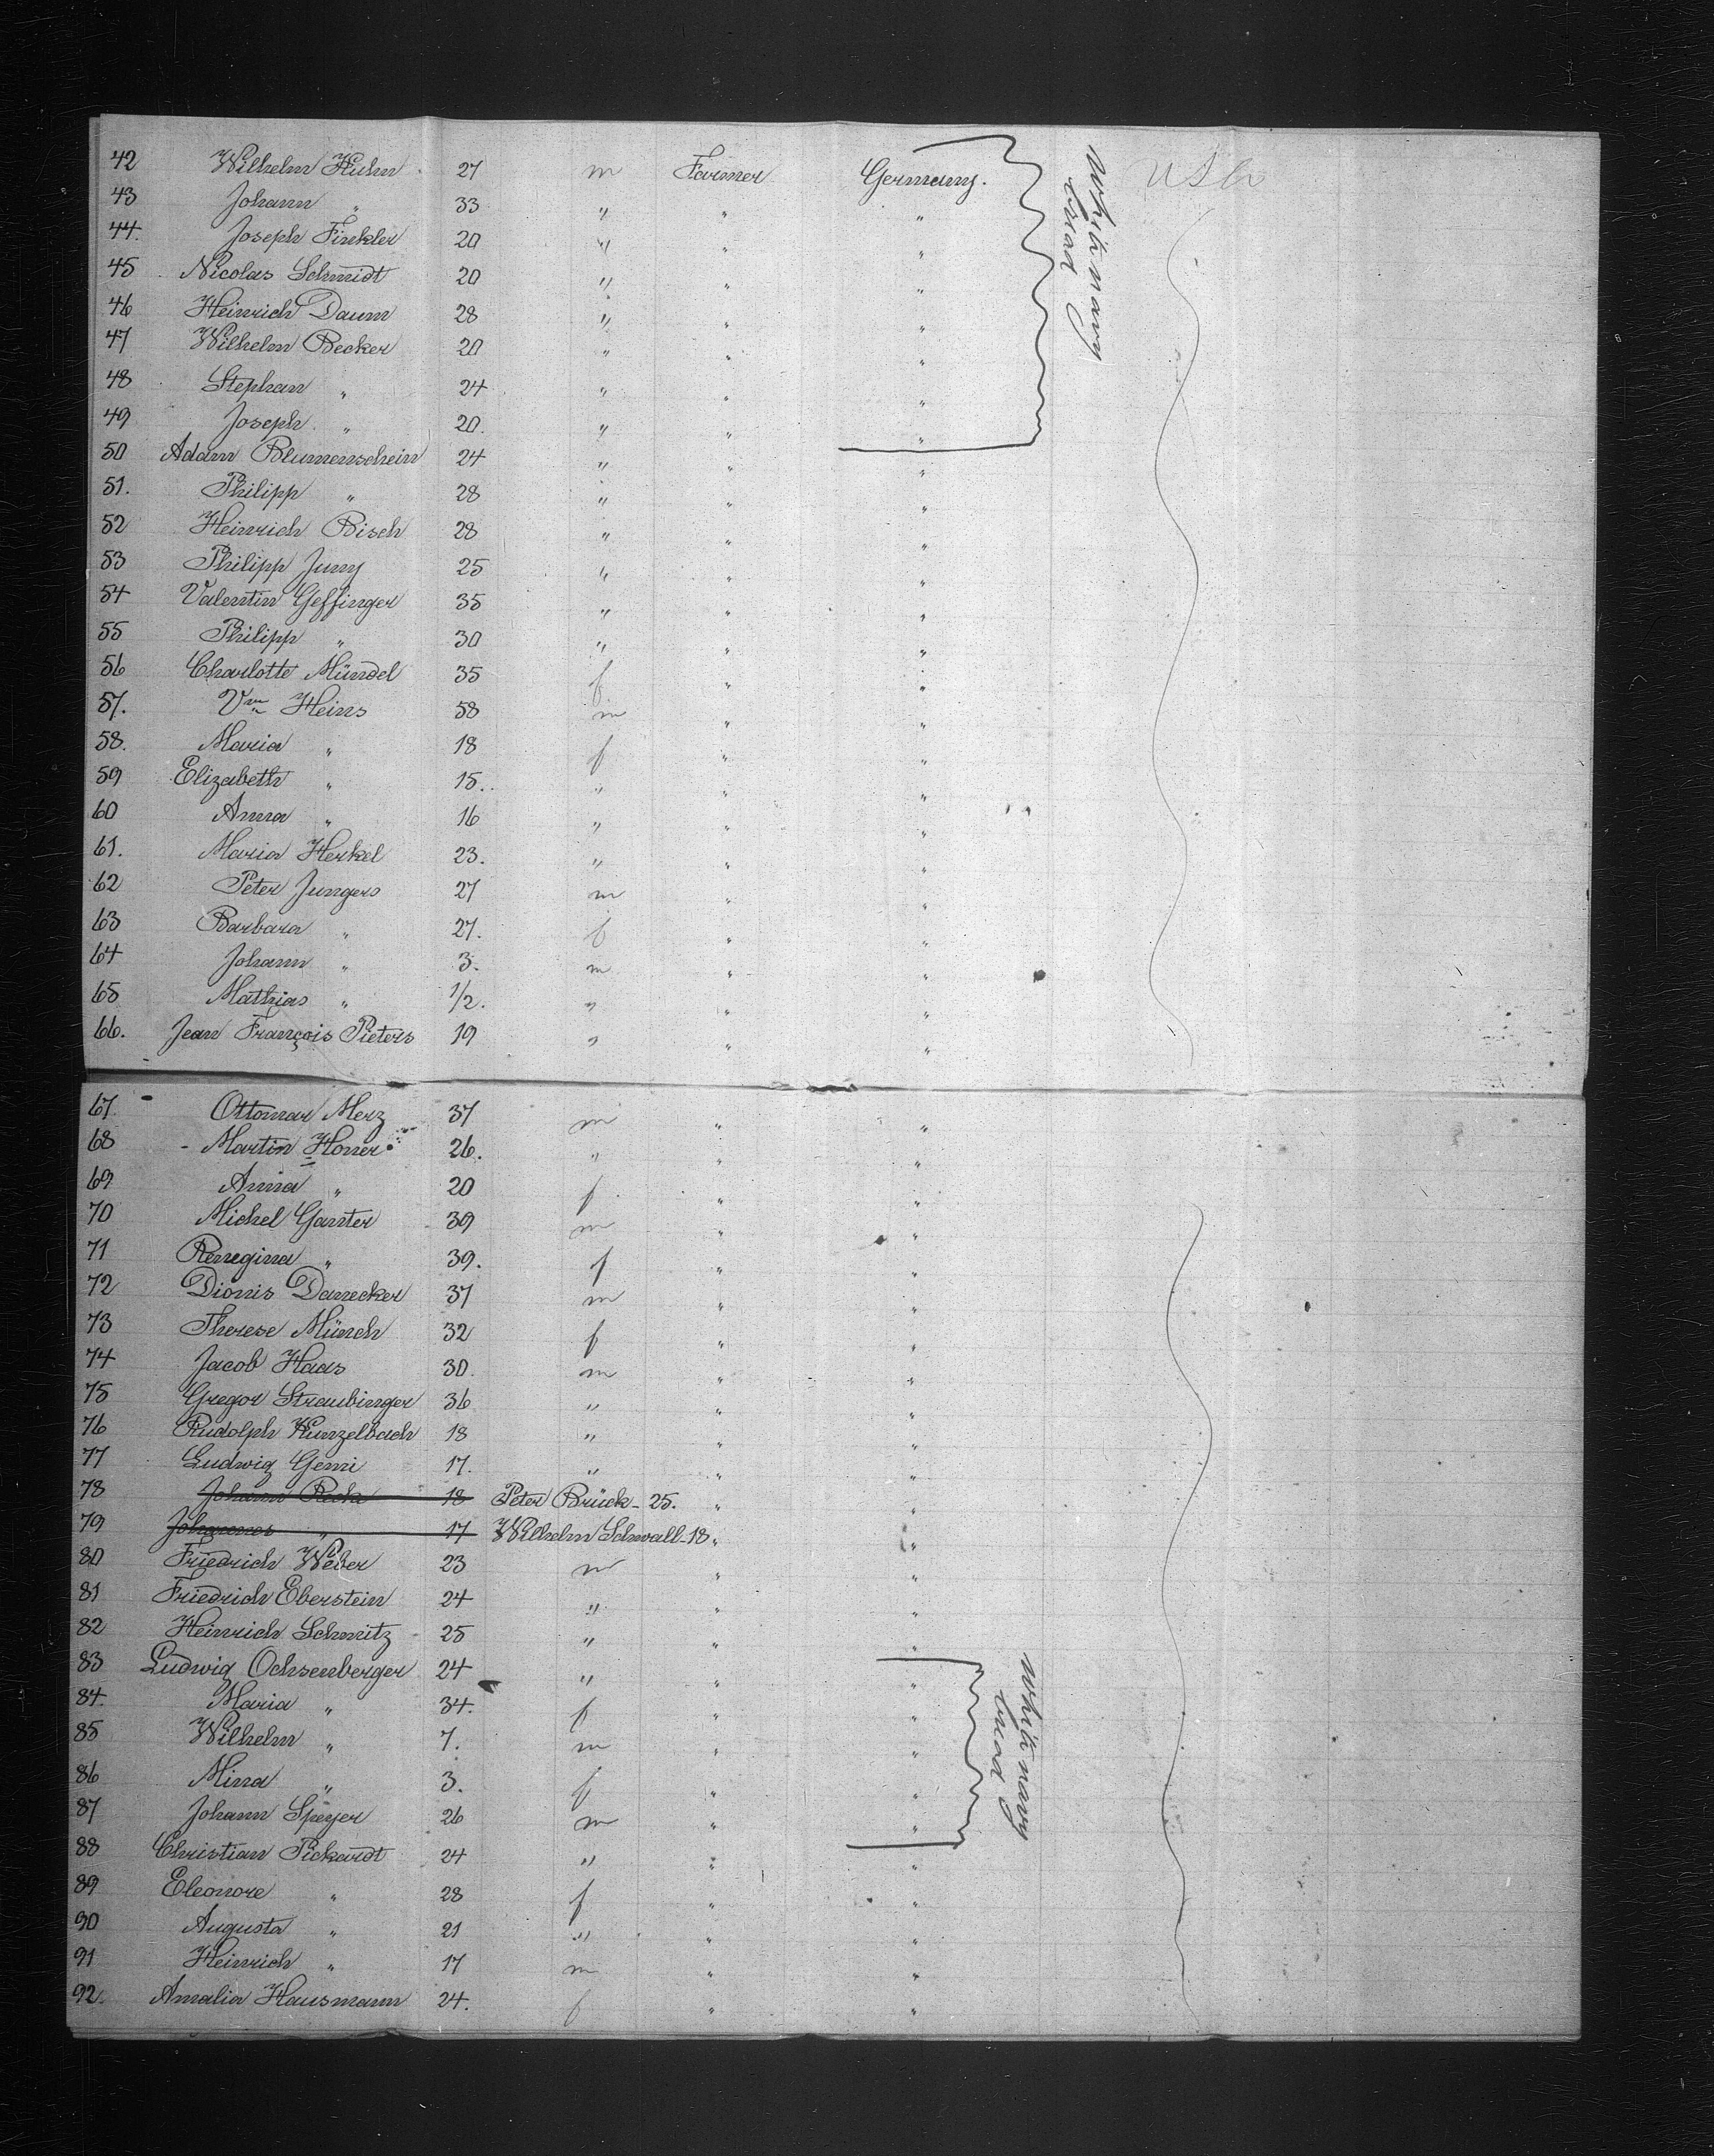 42 Wilhelm Huhn 27 m Farmer Germany. USA
43 Johann " 33 " " "
44. Joseph Finkler 20 " " "
45 Nicolas Schmidt 20 " " "
46 Heinrich Daum 28 " " "
47 Wilhelm Becker 20 " " "
48 Stephan " 24 " " "
49 Joseph " 20. " " "
50 Adam Blumenschein 24 " " "
51. Philipp " 28 " " "
52 Heinrich Bisch 28 " " "
53 Philipp Jung 25 " " "
54 Valentin Geffinger 35 " " "
55 Philipp " 30 " " "
56 Charlotte Mündel 35 f " "
57. Vm Heins 58 m " "
58. Maria " 18 f " "
59 Elizabeth " 15. " " "
60 Anna " 16 " " "
61. Maria Herkel 23. " " "
62 Peter Jungers 27 m " "
63 Barbara " 27. f " "
64 Johann " 3. m " "
65 Mathias " 1/2. " " "
66. Jean François Pieters 19 " " "
67. Ottomar Merz 37 m " "
68 Martin Honer 26. " " "
69 Anna " 20 f " "
70 Michel Ganter 39 m " "
71 Renegina " 39. f " "
72 Dionis Danecker 37 m " "
73 Therese Münch 32 f " "
74 Jacob Haas 30. m " "
75 Gregor Straubinger 36 " " "
76 Rudolph Kunzelbach 18 " " "
77 Ludwig Gemi 17. " " "
78 Johann Reck 18 Peter Brück - 25. " "
79 Johannes " 17 Wilhelm Schwall - 18 " "
80 Friedrich Weber 23 m " "
81 Friedrich Eberstein 24 " " "
82 Heinrich Schmitz 25 " " "
83 Ludwig Ochsenberger 24 " " "
84. Maria " 34. f " "
85 Wilhelm " 7. m " "
86 Mina " 3. f " "
87 Johann Speyer 26 m " "
88 Christian Pickardt 24 " " "
89 Eleonore " 28 f " "
90 Augusta " 21 " " "
91 Heinrich " 17 m " "
92. Amalia Hausmann 24. f " "